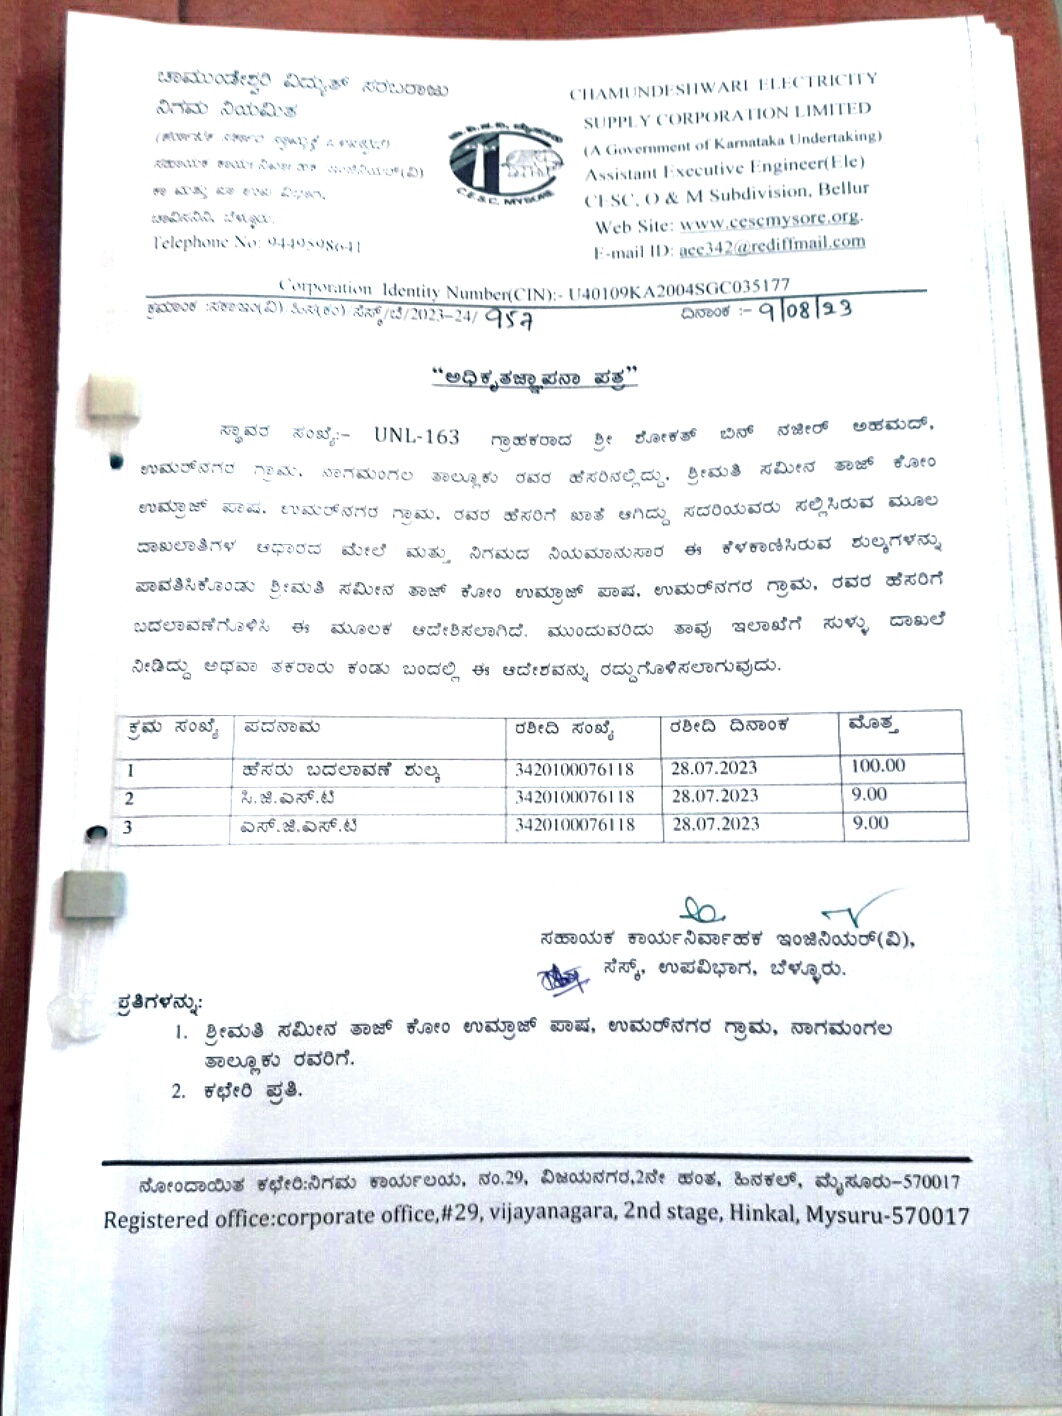 ಚಾಮುಂಡೇಶ್ವರಿ ವಿದ್ಯುತ್ ಸರಬರಾಜು
ನಿಗಮ ನಿಯಮಿತ
(ಕರ್ನಾಟಕ ಸರ್ಕಾರದ
ಸಹಾಯಕ ಕಾರ್ಯನಿರ್ವಾಹಕ ಇಂಜಿನಿಯರ್(ವಿ)
ಕಾ ಮತ್ತು ಪಾ ಉಪ ವಿಭಾಗ,
ಚಾವಿಸನಿನಿ, ಬೆಳ್ಳೂರು.
Telephone No: 9449598641
C.E.S.C. MYSORE
CHAMUNDESHWARI ELECTRICITY
SUPPLY CORPORATION LIMITED
(A Government of Karnataka Undertaking)
Assistant Executive Engineer(Ele)
CESC, O & M Subdivision, Bellur
Web Site: www.cescmysore.org.
E-mail ID: aee342@rediffmail.com
Corporation Identity Number(CIN):- U40109KA2004SGC035177
ಕ್ರಮಾಂಕ :ಸಕಾಇಂ(ವಿ)/ಹಿಸ(ಕಂ)/ಸೆಸ್ಕ್/ಬೆ/2023-24/ 957 ದಿನಾಂಕ :- 9/08/23
“ಅಧಿಕೃತಜ್ಞಾಪನಾ ಪತ್ರ”
ಸ್ಥಾವರ ಸಂಖ್ಯೆ:- UNL-163 ಗ್ರಾಹಕರಾದ ಶ್ರೀ ಶೋಕತ್ ಬಿನ್ ನಜೀರ್ ಅಹಮದ್,
ಉಮರ್‌ನಗರ ಗ್ರಾಮ, ನಾಗಮಂಗಲ ತಾಲ್ಲೂಕು ರವರ ಹೆಸರಿನಲ್ಲಿದ್ದು, ಶ್ರೀಮತಿ ಸಮೀನ ತಾಜ್ ಕೋಂ
ಉಮ್ರಾಜ್ ಪಾಷ, ಉಮರ್‌ನಗರ ಗ್ರಾಮ, ರವರ ಹೆಸರಿಗೆ ಖಾತೆ ಆಗಿದ್ದು ಸದರಿಯವರು ಸಲ್ಲಿಸಿರುವ ಮೂಲ
ದಾಖಲಾತಿಗಳ ಆಧಾರದ ಮೇಲೆ ಮತ್ತು ನಿಗಮದ ನಿಯಮಾನುಸಾರ ಈ ಕೆಳಕಾಣಿಸಿರುವ ಶುಲ್ಕಗಳನ್ನು
ಪಾವತಿಸಿಕೊಂಡು ಶ್ರೀಮತಿ ಸಮೀನ ತಾಜ್ ಕೋಂ ಉಮ್ರಾಜ್ ಪಾಷ, ಉಮರ್‌ನಗರ ಗ್ರಾಮ, ರವರ ಹೆಸರಿಗೆ
ಬದಲಾವಣೆಗೊಳಿಸಿ ಈ ಮೂಲಕ ಆದೇಶಿಸಲಾಗಿದೆ. ಮುಂದುವರಿದು ತಾವು ಇಲಾಖೆಗೆ ಸುಳ್ಳು ದಾಖಲೆ
ನೀಡಿದ್ದು ಅಥವಾ ತಕರಾರು ಕಂಡು ಬಂದಲ್ಲಿ ಈ ಆದೇಶವನ್ನು ರದ್ದುಗೊಳಿಸಲಾಗುವುದು.
ಕ್ರಮ ಸಂಖ್ಯೆ ಪದನಾಮ ರಶೀದಿ ಸಂಖ್ಯೆ ರಶೀದಿ ದಿನಾಂಕ ಮೊತ್ತ
1 ಹೆಸರು ಬದಲಾವಣೆ ಶುಲ್ಕ 3420100076118 28.07.2023 100.00
2 ಸಿ.ಜಿ.ಎಸ್.ಟಿ 3420100076118 28.07.2023 9.00
3 ಎಸ್.ಜಿ.ಎಸ್.ಟಿ 3420100076118 28.07.2023 9.00
ಸಹಾಯಕ ಕಾರ್ಯನಿರ್ವಾಹಕ ಇಂಜಿನಿಯರ್(ವಿ),
ಸೆಸ್ಕ್, ಉಪವಿಭಾಗ, ಬೆಳ್ಳೂರು.
ಪ್ರತಿಗಳನ್ನು:
1. ಶ್ರೀಮತಿ ಸಮೀನ ತಾಜ್ ಕೋಂ ಉಮ್ರಾಜ್ ಪಾಷ, ಉಮರ್‌ನಗರ ಗ್ರಾಮ, ನಾಗಮಂಗಲ
ತಾಲ್ಲೂಕು ರವರಿಗೆ.
2. ಕಛೇರಿ ಪ್ರತಿ.
ನೋಂದಾಯಿತ ಕಛೇರಿ:ನಿಗಮ ಕಾರ್ಯಲಯ, ನಂ.29, ವಿಜಯನಗರ,2ನೇ ಹಂತ, ಹಿನಕಲ್, ಮೈಸೂರು-570017
Registered office:corporate office,#29, vijayanagara, 2nd stage, Hinkal, Mysuru-570017